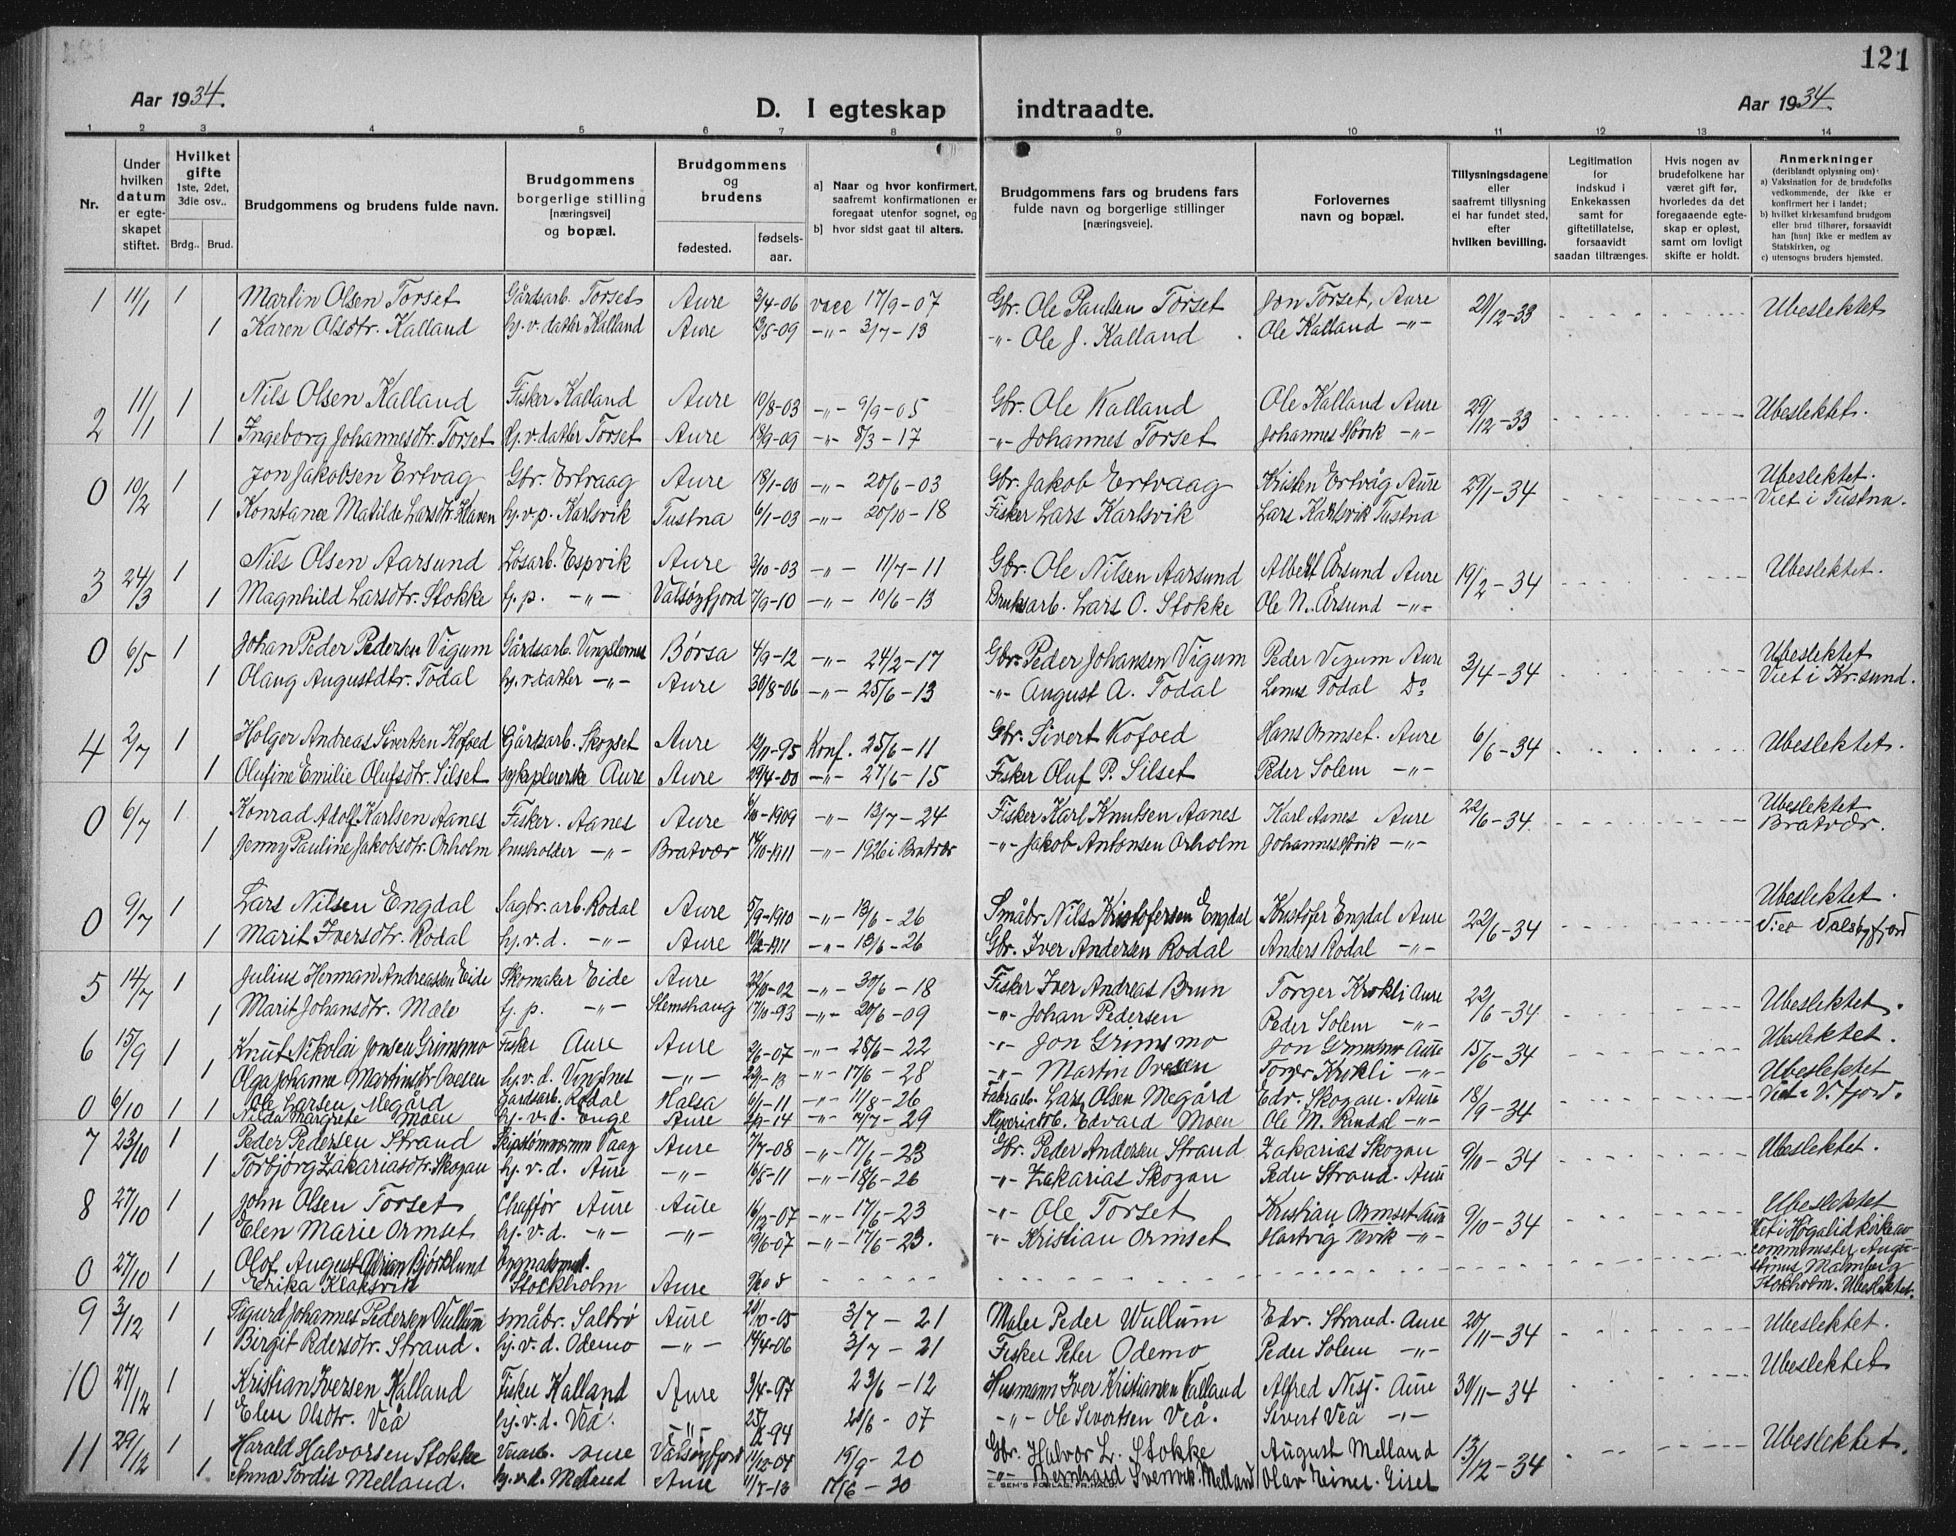 121
Aar 1934.
D. I egteskap indtraadte.
Aar 1934.
1 2 3 4 5 6 7 8 9 10 11 12 13 14
Nr.
Under hvilken datum er egteskapet stiftet.
Hvilket gifte 1ste, 2det, 3die osv..
Brdg.. Brud.
Brudgommens og brudens fulde navn.
Brudgommens borgerlige stilling [næringsvei] og bopæl.
Brudgommens og brudens
fødested. fødselsaar.
a] Naar og hvor konfirmert, saafremt konfirmationen er foregaat utenfor sognet, og
b] hvor sidst gaat til alters.
Brudgommens fars og brudens fars fulde navn og borgerlige stillinger [næringsveie].
Forlovernes navn og bopæl.
Tillysningsdagene eller saafremt tillysning ei har fundet sted, efter hvilken bevilling.
Legitimation for indskud i Enkekassen samt for giftetillatelse, forsaavidt saadan tiltrænges.
Hvis nogen av brudefolkene har været gift før, hvorledes da det foregaaende egteskap er opløst, samt om lovligt skifte er holdt.
Anmerkninger (deriblandt oplysning om):
a) Vaksination for de brudefolks vedkommende, der ikke er konfirmert her i landet;
b) hvilket kirkesamfund brudgom eller brud tilhører, forsaavidt han [hun] ikke er medlem av Statskirken, og
c) utensogns bruders hjemsted.
1 11/1 1 Martin Olsen Torset Gårdsarb. Torset Aure 3/4-06 vacc 17/9-07 Gbr. Ole Paulsen Torset Jon Torset, Aure 29/12-33 Ubeslektet
1 Karen Olsdtr. Kalland hj. v. datter Kalland Aure 13/5-09 -"- 3/7-13 -"- Ole J. Kalland Ole Kalland -"-
2 11/1 1 Nils Olsen Kalland Fisker Kalland Aure 10/8-03 -"- 9/9-05 Gbr. Ole Kalland Ole Kalland Aure 29/12-33 Ubeslektet.
1 Ingeborg Johannesdtr. Torset hj. v. datter Torset Aure 18/9-09 -"- 8/3-17 -"- Johannes Torset Johannes Hövik -"-
0 10/2 1 Jon Jakobsen Ertvag Gbr. Ertvaag Aure 18/1-00 -"- 20/6-03 Gbr. Jakob Ertvaag Kristen Ertvåg Aure 29/1-34 Ubeslektet. Viet i Tustna.
1 Konstance Matilde Larsdtr. Klaven hj. v. p. Karlsvik Tustna 6/1-03 -"- 20/10-18 Fisker Lars Karlsvik Lars Karlsvik Tustna
3 24/3 1 Nils Olsen Aarsund Løsarb. Espvik Aure 3/10-03 -"- 11/7-11 Gbr. Ole Nilsen Aarsund Albert Årsund Aure 19/2-34 Ubeslektet.
1 Magnhild Larsdtr. Stokke hj. p. -"- Valsøyfjord 7/9-10 -"- 10/6-13 Bruksarb. Lars O. Stokke Ole N. Årsund -"-
0 6/5 1 Johan Peder Pedersen Vigum Gårdsarb. Vingsternes Børsa 4/9-12 -"- 24/2-17 Gbr. Peder Johansen Vigum Peder Vigum Aure 3/4-34 Ubeslektet Viet i Kr.sund.
1 Olaug Augustdtr. Todal hj. v. datter -"- Aure 30/8-06 -"- 25/6-13 -"- August A. Todal Todal Do
4 2/7 1 Holger Andreas Sivertsen Kofoed Gårdsarb. Skogset Aure 12/11-95 Konf. 25/6-11 Gbr. Sivert Kofoed Hans Ormset. Aure 6/6-34 Ubeslektet.
1 Olufine Emilie Olufsdtr. Silset sykepleierske Aure Aure 29/4-00 -"- 27/6-15 Fisker Oluf P. Silset Peder Solem -"-
0 6/7 1 Konrad Adolf Karlsen Aanes Fisker. Aanes Aure 6/10-1909 -"- 13/7-24 Fisker Karl Knutsen Aanes Karl Aanes Aure 22/6-34. Ubeslektet Bratvær.
1 Jenny Pauline Jakobsdtr. Orholm husholder -"- Bratvær 14/10-1911 -"- 1926 i Bratvær -"- Jakob Antonsen Orholm Johannes Hövik -"-
0 9/7 1 Lars Nilsen Engdal Sagbr. arb. Rodal Aure 5/9-1910 -"- 13/6-26 Småbr. Nils Kristofersen Engdal Kristofer Engdal Aure 22/6-34 Ubeslektet. Viet Valsøyfjord
1 Marit Iversdtr. Rodal hj. v. d. -"- Aure 10/2-1911 -"- 13/6-26 Gbr. Iver Andersen Rodal Anders Rodal -"-
5 14/7 1 Julius Herman Andreassen Eide Skomaker Eide Aure 22/10-02 -"- 30/6-18 Fisker Iver Andreas Brun Torger Krokli Aure 22/6-34 Ubeslektet.
1 Marit Johansdtr. Mæle hj. p. -"- Stemshaug 17/10-93 -"- 20/6-09 -"- Johan Pedersen Peder Solem -"-
6 15/9 1 Knut Nikolai Jonsen Grimsmo Fisker Aure Aure 2/6-07 -"- 28/6-22 -"- Jon Grimsmo Jon Grimsmo Aure 15/6-34 Ubeslektet.
1 Olga Johanne Martinsdtr Ovesen hj. v. d. Vingsnes -"- 22/1-13 -"- 17/6-28 -"- Martin Ovesen Torger Krokli -"-
0 6/10 1 Ole Larsen Megård Gårdsarb. Rodal Halsa 6/1-11 -"- 11/8-26 Fabrarb. Lars Olsen Megård Edv. Skogan. Aure 18/9-34 Ubeslektet Viet i V.fjord.
1 Nilda Margrete Moen hj. v. d. Enge Aure -14 -"- -29 Edvard Moen Ole M. Rendal -"-
7 23/10 1 Peder Pedersen Strand Skipstømmermn Vaag Aure 7/7-08 -"- 17/6-23 Gbr. Peder Andersen Strand Zakarias Skogan 9/10-34 Ubeslektet.
1 Torbjørg Zakariasdtr. Skogan hj. v. d. Aure -"- 16/5-11 -"- 18/6-26 -"- Zakarias Skogan Peder Strand. Aure
8 27/10 1 John Olsen Torset Chaffør Aure Aure 16/12-07 -"- 17/6-23 -"- Ole Torset Kristian Ormset Aure 9/10-34 Ubeslektet
1 Elen Marie Ormset hj. v. d. -"- -"- 19/6-07 -"- 17/6-23. -"- Kristian Ormset Hartvig -"-
0 27/10 1 Olof August Adrian Björklund Viet i Högalid kirke av comminister Augustinus Malmberg Stokholm. Ubeslektet.
1 Erika Klaksvik Stockholm Aure
9 3/12 1 Sigurd Johannes Pedersen Vullum småbr. Saltrø Aure 20/10-05 3/7-21 Maler Peder Wullum Edv. Strand. Aure 20/11-34 Ubeslektet.
1 Birgit Pedersdtr. Strand. hj. v. d. Odemo -"- 14/4-06 3/7-21 Fisker Peter Odemo Peder Solem -"-
10 27/12 1 Kristian Iversen Kalland Fisker Kalland Aure 9/4-97 23/6-12 Husmann Iver Kristiansen Kalland Alfred Nesj. Aure 30/11-34 Ubeslektet
1 Elen Olsdtr. Veå hj. v. d. Veå. -"- -94 20/6-07 -"- Ole Sivertsen Veå. Sivert Veå -"-
11 29/12 1 Harald Halvorsen Stokke Veiarb. Aure Valsøyfjord 11/10-04 19/9-20 Gbr. Halvor L. Stokke August Melland 13/12-34 Ubeslektet.
1 Anna Tordis Melland. hj. v. d. Melland Aure 11/5-13 17/6-30 -"- Bernhard Svenvik Melland Olav Einar. Giset
E. SEM'S FORLAG, FR.HALD.